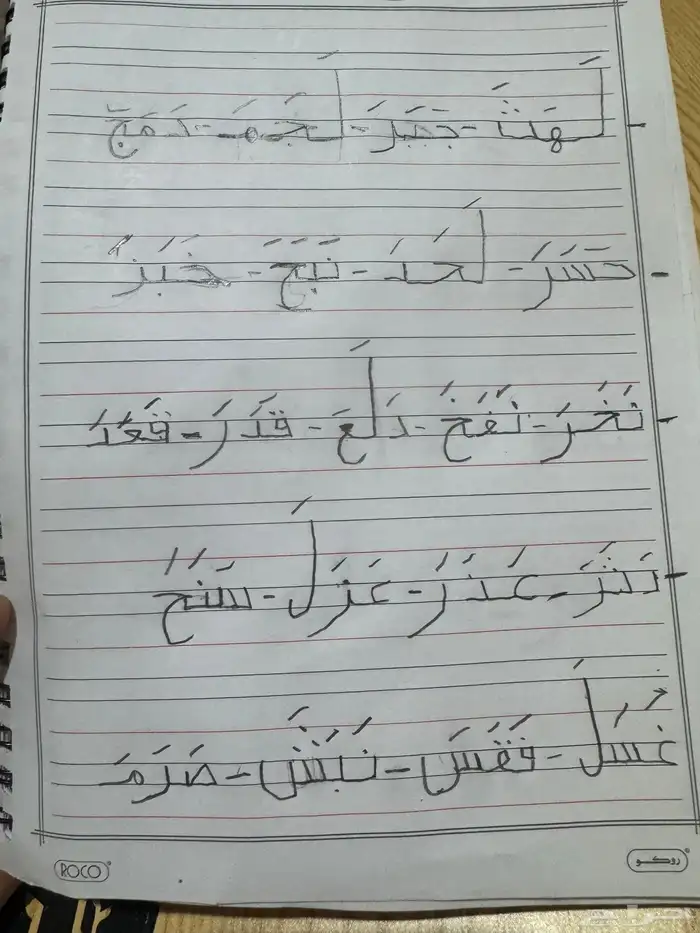 لَهَثَ - جَبَرَ - لَجَمَ - دَمَجَ
حَسَرَ - لَحَدَ - نَبَحَ - خَبَزَ
نَخَرَ - نَفَخَ - دَلَعَ - قَدَرَ - قَعَدَ
نَثَرَ - عَذَرَ - عَزَلَ - سَنَحَ
غَسَلَ - فَقَسَ - نَبَشَ - صَرَمَ
ROCO روكو